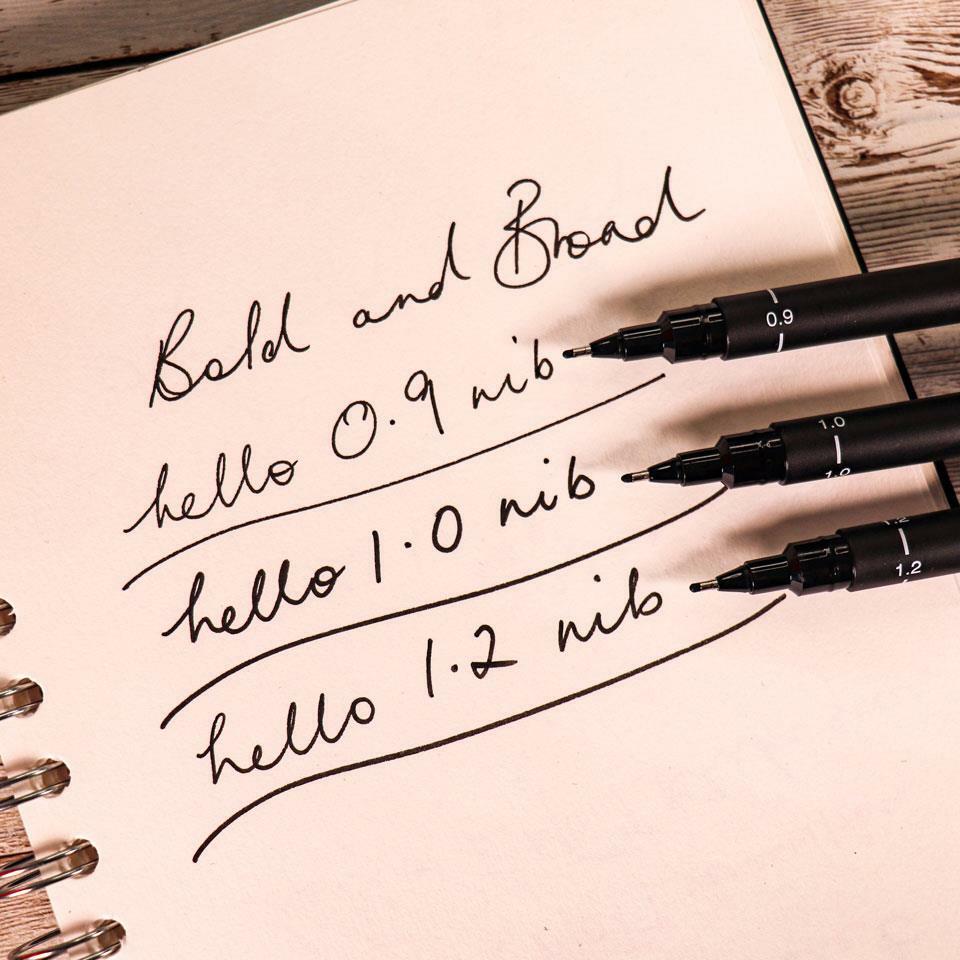 Bold and Broad
hello 0.9 nib
hello 1.0 nib
hello 1.2 nib
0.9
1.0
1.0
1.2
1.2